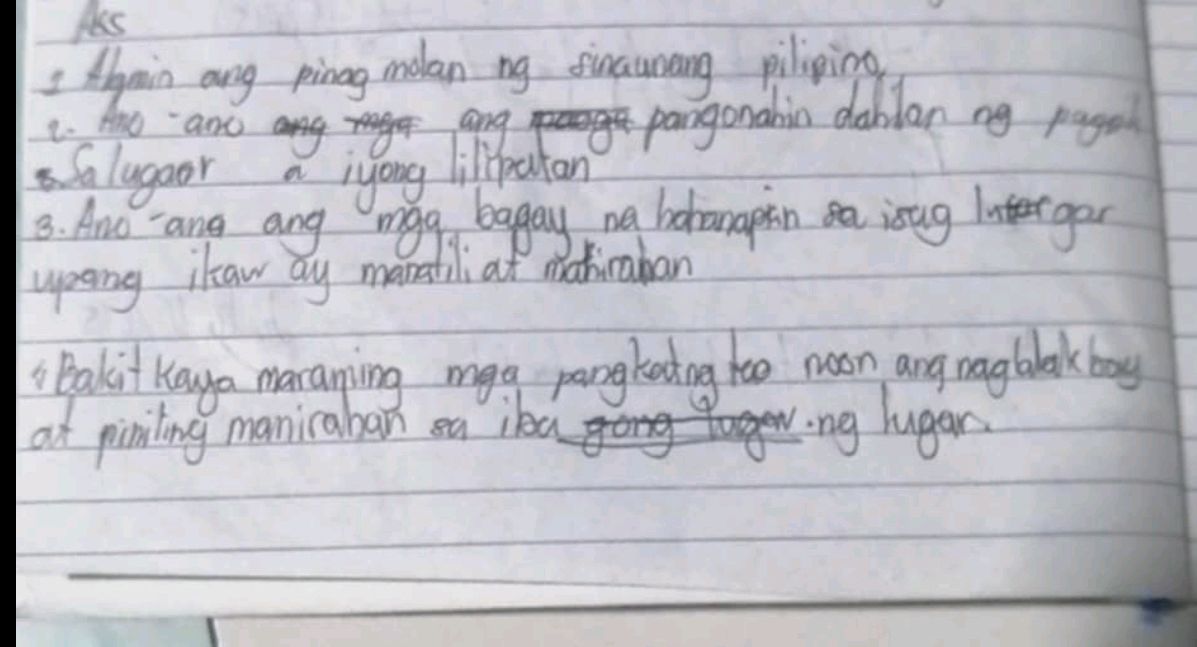 Aks
1 Alamin ang pinag molan ng sinaunang pilipino,
2. Ano -ano ang mga ang pangonahin dahlan ng
Sa lugaor a iyong lilipatan
3. Ano -ang ang mga bagay na hahanapin sa isug gar
upang ikaw ay manatili at manirahan
4 Bakit kaya maraming mga pangkating tao noon ang nagblak bay
at piniling manirahan sa iba gong lugar .ng lugar.